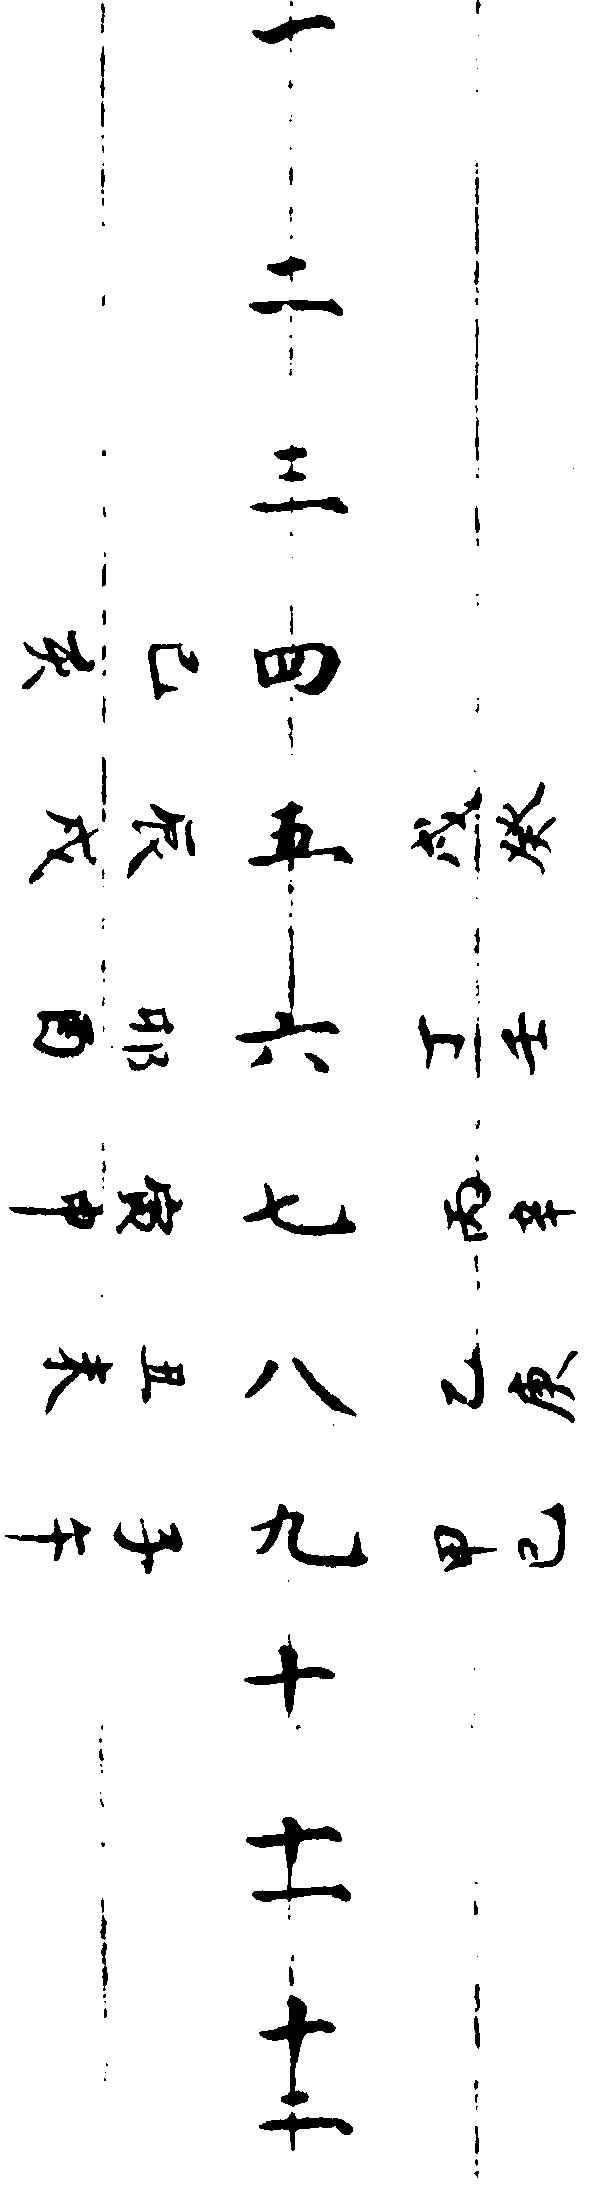 癸壬辛庚己
戊丁丙乙甲
一二三四五六七八九十十一十二
巳辰卯寅丑子
亥戌酉申未午